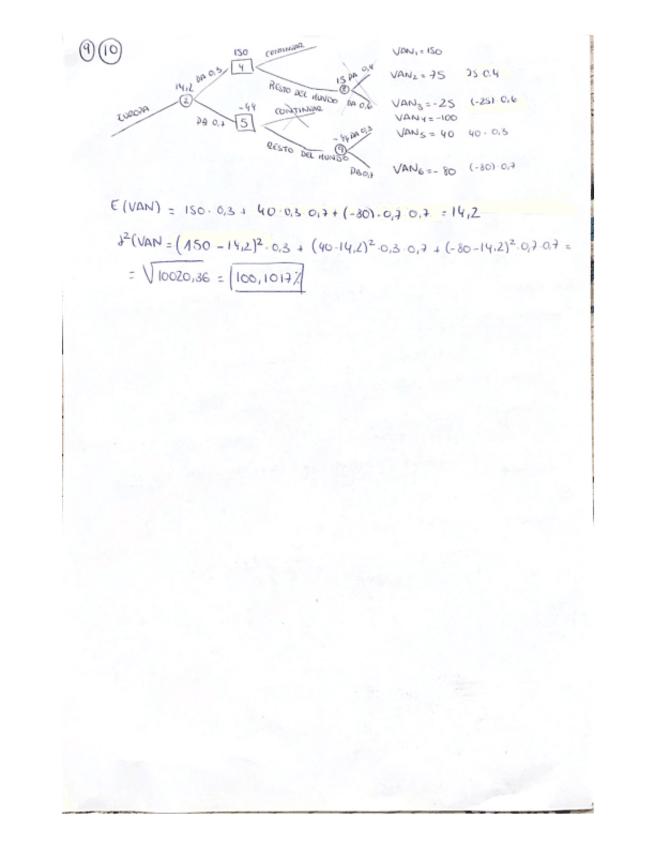 9 10
EUROPA
14,2
2
DA 0,3
DB 0,7
150
4
CONTINUAR
RESTO DEL MUNDO
15 DA 0,4
8
DB 0,6
-44
5
CONTINUAR
RESTO DEL MUNDO
-44 DA 0,3
9
DB 0,7
VAN₁ = 150
VAN₂ = 75 75 0.4
VAN₃ = -25 (-25) 0,6
VAN₄ = -100
VAN₅ = 40 40 · 0,3
VAN₆ = - 80 (-80) · 0,7
E (VAN) = 150 · 0,3 + 40 · 0,3 · 0,7 + (-80) · 0,7 · 0,7 = 14,2
²(VAN = (150 - 14,2)² · 0,3 + (40-14,2)² · 0,3 · 0,7 + (-80 -14,2)² · 0,7 · 0,7 =
= √10020,36 = 100,1017%